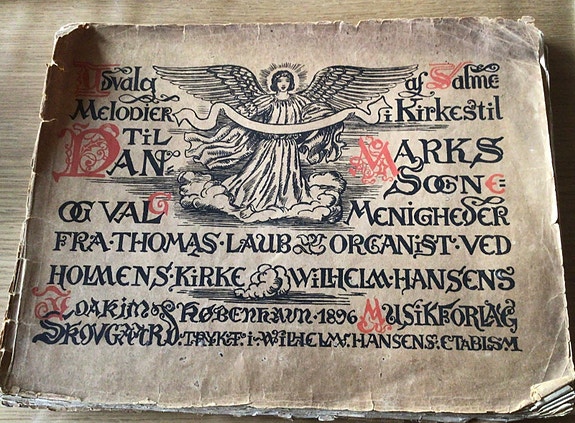 Udvalg af Salme
Melodier i Kirkestil
TIL
DANMARKS
SOGNE
OG VALG MENIGHEDER
FRA·THOMAS·LAUB ORGANIST·VED
HOLMENS·KIRKE WILHELM·HANSENS
JOAKIM KØBENHAVN·1896 MUSIKFORLAG
SKOVGAARD·TRYKT·I·WILHELM·HANSENS·ETABLSM